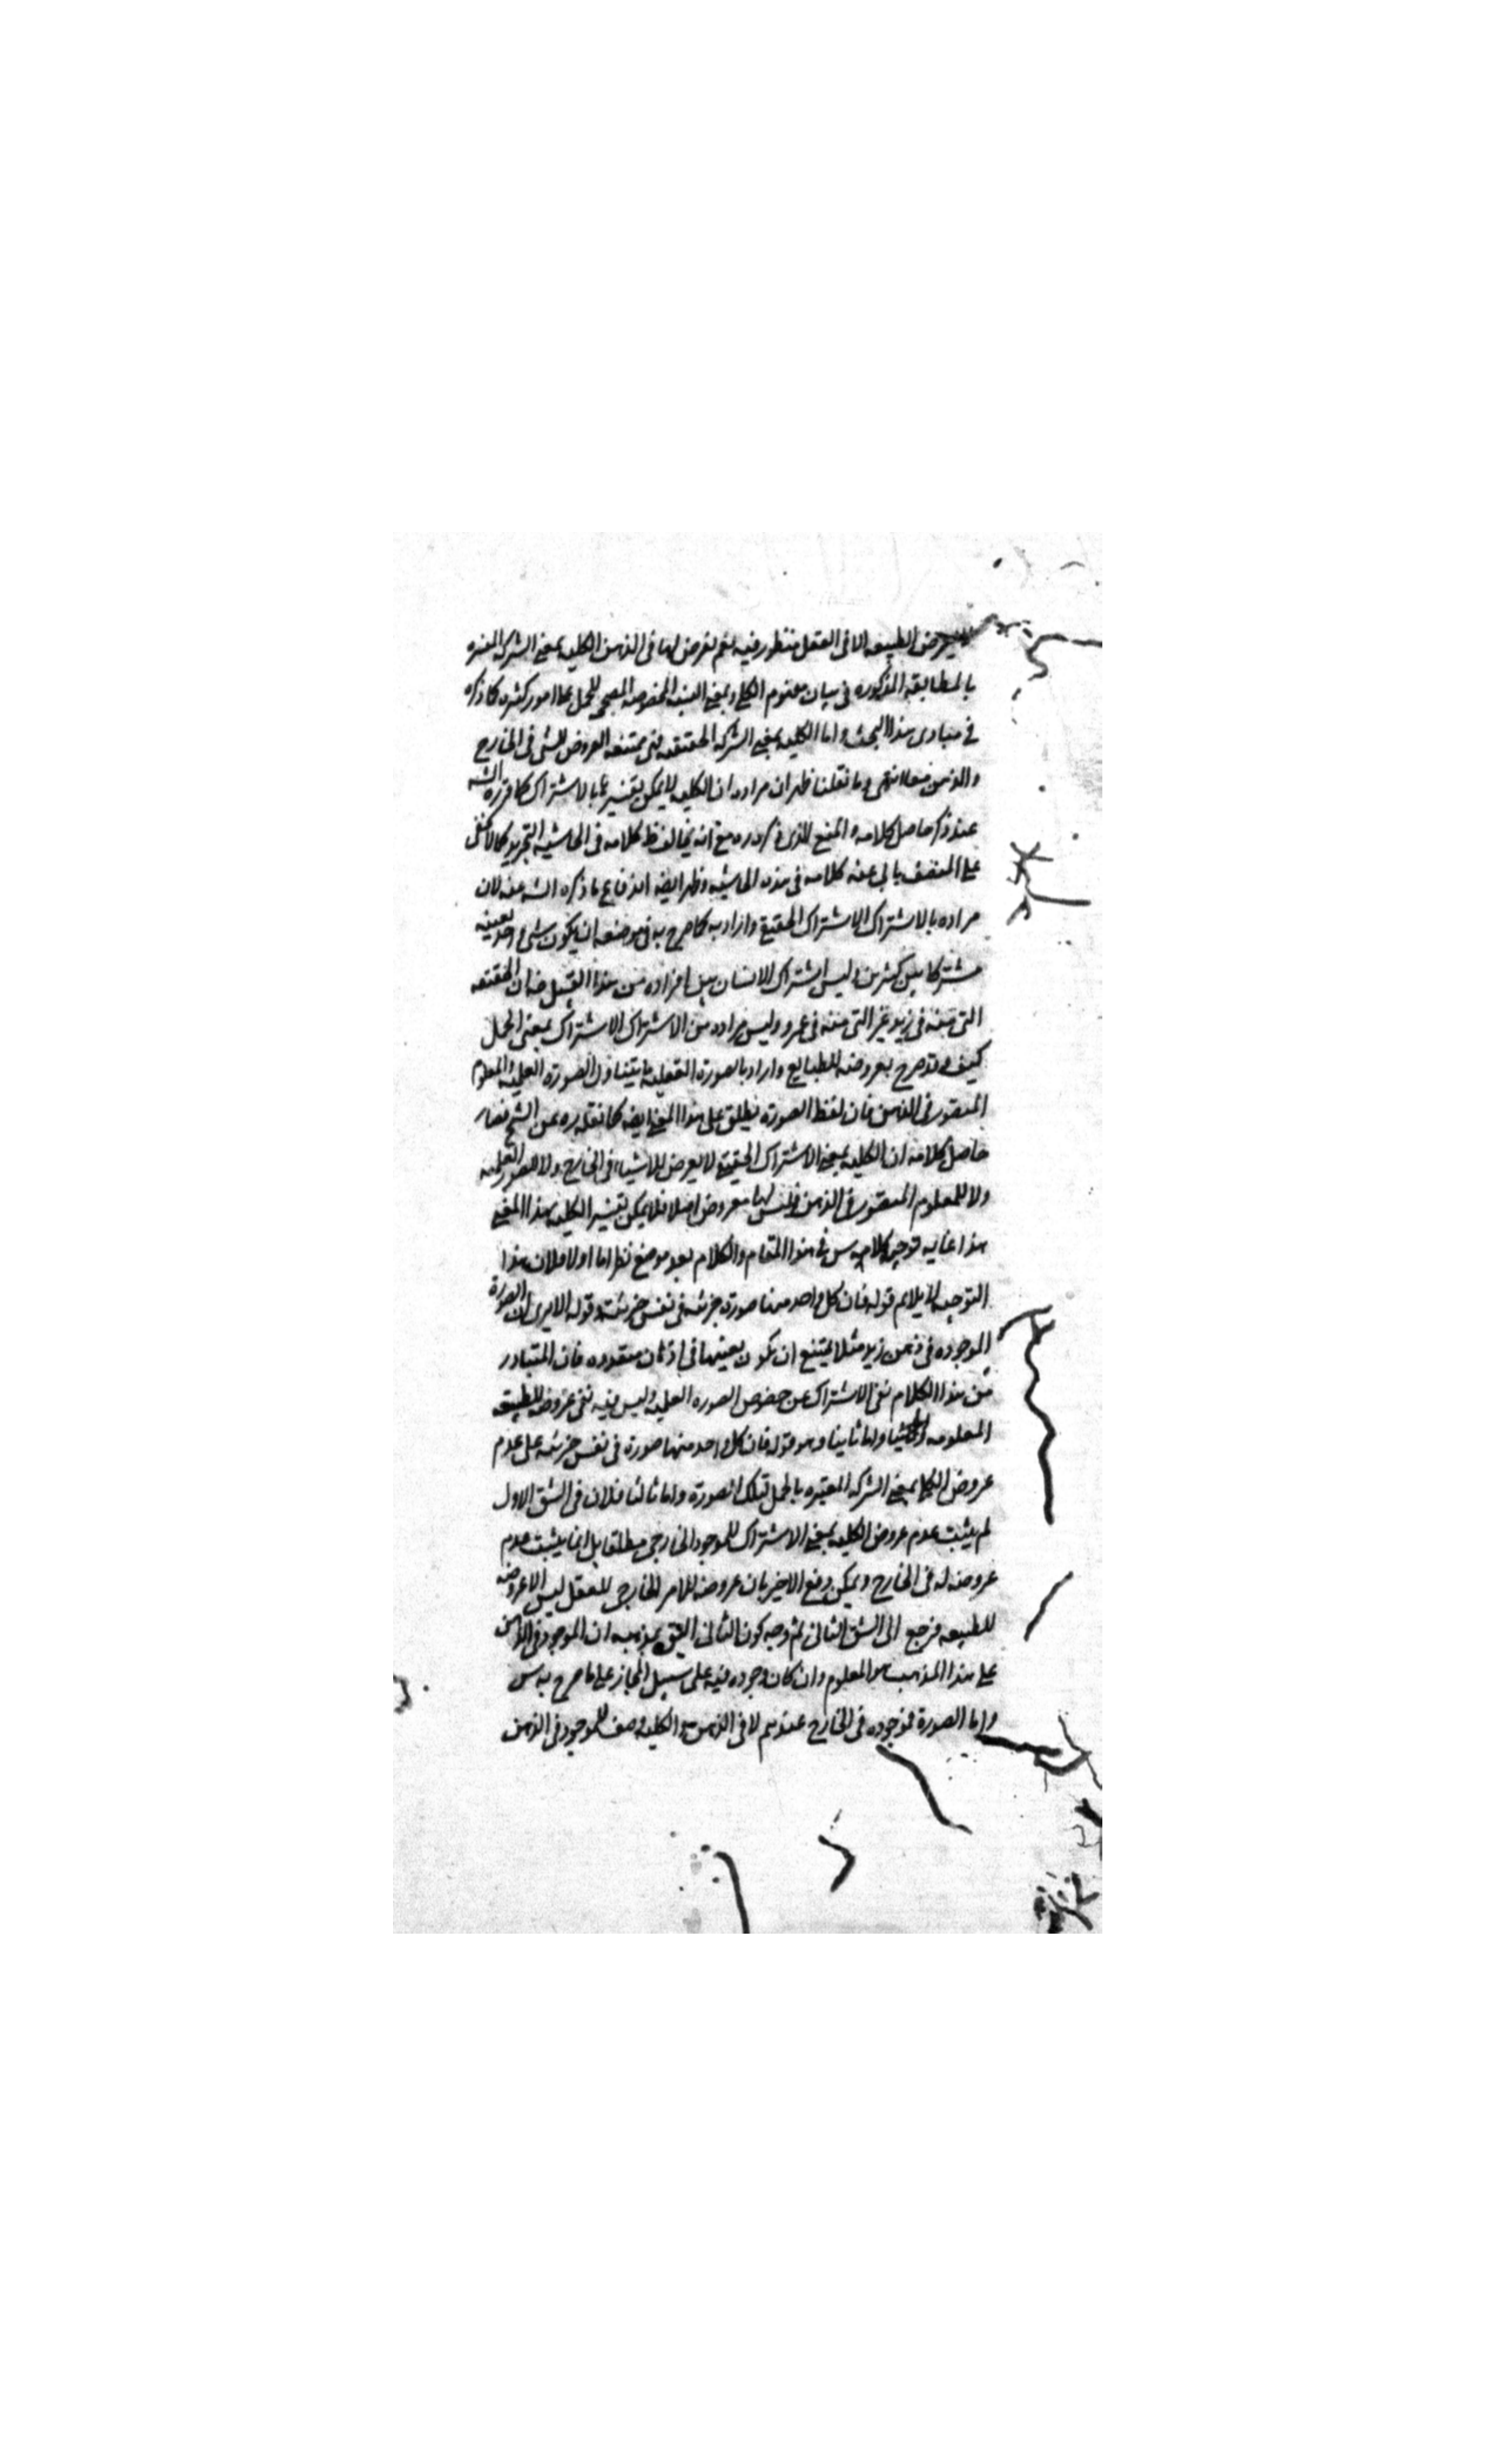 يعرض الطبيعه الا فى العقل منظور فيه نعم تعرض لها فى الذهن الكليه بمعنى الشركه المفسره
بالمطابقه المذكوره فى بيان مفهوم الكلى وبمعنى النسبه المخصوصه المصححه للحمل على امور كثيره كما ذكره
فى مبادى هذا البحث واما الكليه بمعنى الشركه الحقيقيه فهى ممتنعه العروض للشى فى الخارج
والذهن معا انتهى وما نقلنا ظهر ان مراده ان الكليه لا يمكن تفسيرها بالاشتراك كما قرره الشه
عند ذكر حاصل كلامه والمنع الذى ذكره مع انه يخالف ظ كلامه فى الحاشيه التجريد كما لا يخفى
على المنصف يابى عنه كلامه فى هذه الحاشيه وظهر ايضا اندفاع ما ذكره الشه عنه لان
مراده بالاشتراك الاشتراك الحقيقى واراد به كما صرح به فى موضعه ان يكون شى واحد بعينه
مشتركا بين كثيرين وليس اشتراك الانسان بين افراده من هذا القبيل فان الحقيقه
التى منه فى زيد غير التى منه فى عمرو وليس مراده من الاشتراك الاشتراك بمعنى الحمل
كيف وقد صرح بعروضه للطبايع واراد بالصورة العقليه ما يتناول الصورة العلميه والمعلوم
المتصور فى الذهن فان لفظ الصورة يطلق على هذا المعنى ايضا كما نقله ره عن الشيخ فصار
حاصل كلامه ان الكليه بمعنى الاشتراك الحقيقى لا يعرض للاشياء فى الخارج ولا للصور العلميه
ولا للمعلوم المتصور فى الذهن فليس لها معروض اصلا فلا يمكن تفسير الكليه بهذا المعنى
هذا غايه توجيه كلامه س فى هذا المقام والكلام بعد موضع نظر اما اولا فلان هذا
التوجيه لا يلايم قوله فان كل واحد منها صورة جزئيه فى نفس جزئيه وقوله الا يرى ان الصورة
الموجوده فى ذهن زيد مثلا يمتنع ان يكون بعينها فى اذهان متعدده فان المتبادر
من هذا الكلام نفى الاشتراك عن خصوص الصوره العلميه وليس فيه نفى عروضه للطبيعه
المعلومه واما ثانيا وهو قوله فان كل واحد منها صورة فى نفس جزئيه على عدم
عروض الكلى بمعنى الشركه المعتبره بالحمل لتلك الصورة واما ثالثا فلان فى الشق الاول
لم يثبت عدم عروض الكليه بمعنى الاشتراك للموجود الخارجى مطلقا بل انما يثبت عدم
عروضه له فى الخارج ويمكن دفع الاخير بان عروضه للامر الخارجى للعقل ليس الا عروضه
للطبيعه فرجع الى الشق الثانى ثم وجه كون الثانى اليق بمذهبه ان الموجود فى الذهن
على هذا المذهب هو المعلوم وان كان وجوده فيه على سبيل المجاز على ما صرح به س
واما الصورة فموجوده فى الخارج عندهم لا فى الذهن والكليه وصف للموجود فى الذهن